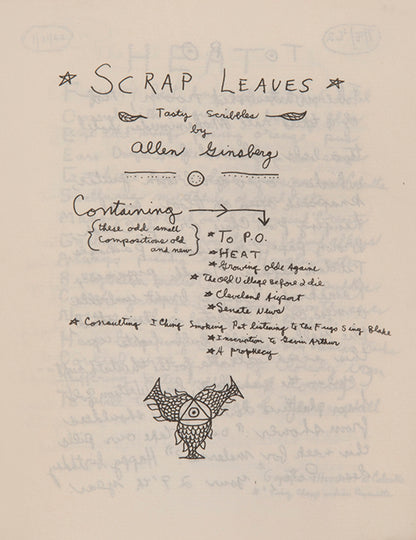 SCRAP LEAVES
Tasty Scribbles
by
Allen Ginsberg
Containing
{these odd small
Compositions old
and new}
* To P.O.
* HEAT
* Growing Olde Againe
* The Old Village Before I die
* Cleveland Airport
* Senate News
* Consulting I Ching Smoking Pot listening to the Fugs Sing Blake
* Inscription to Gavin Arthur
* A Prophecy